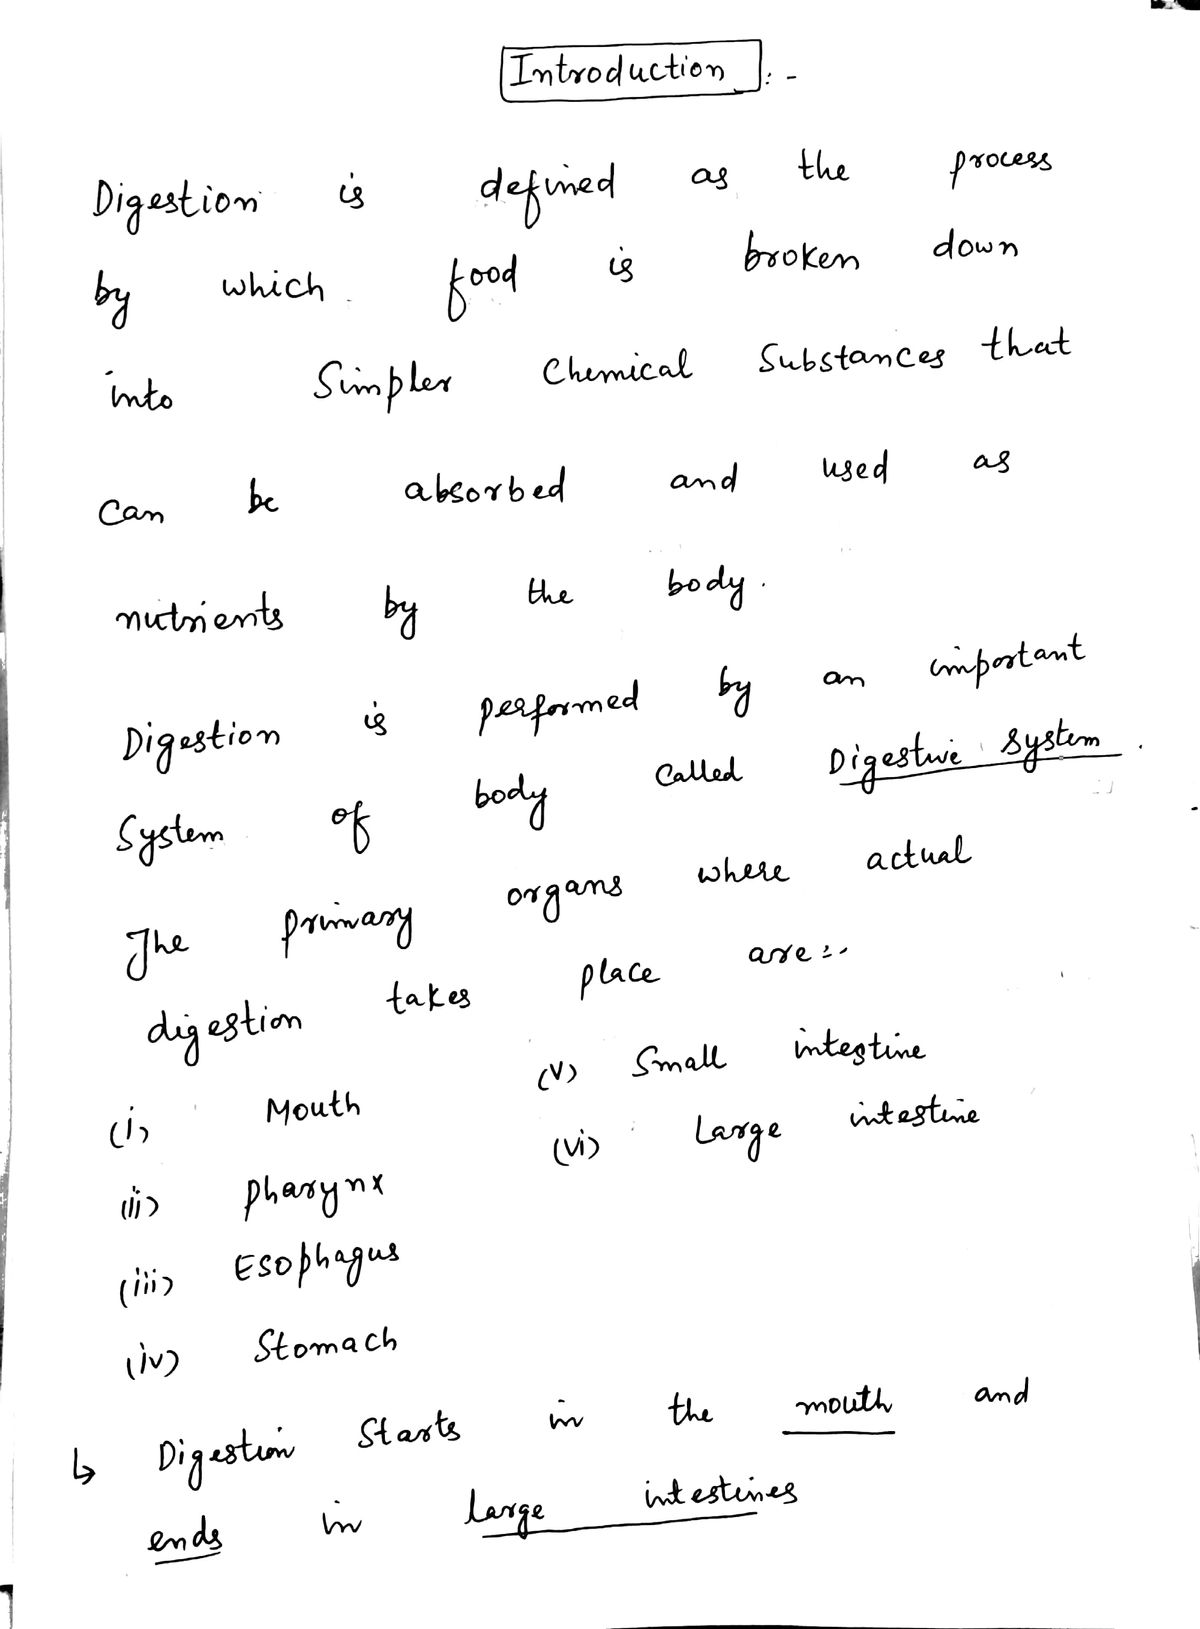 Introduction :-
Digestion is defined as the process
by which food is broken down
into Simpler Chemical Substances that
Can be absorbed and used as
nutrients by the body.
Digestion is performed by an important
System of body Called Digestive System.
The primary organs where actual
digestion takes place are:-
(i) Mouth
(ii) Pharynx
(iii) Esophagus
(iv) Stomach
(v) Small intestine
(vi) Large intestine
↳ Digestion Starts in the mouth and
ends in large intestines